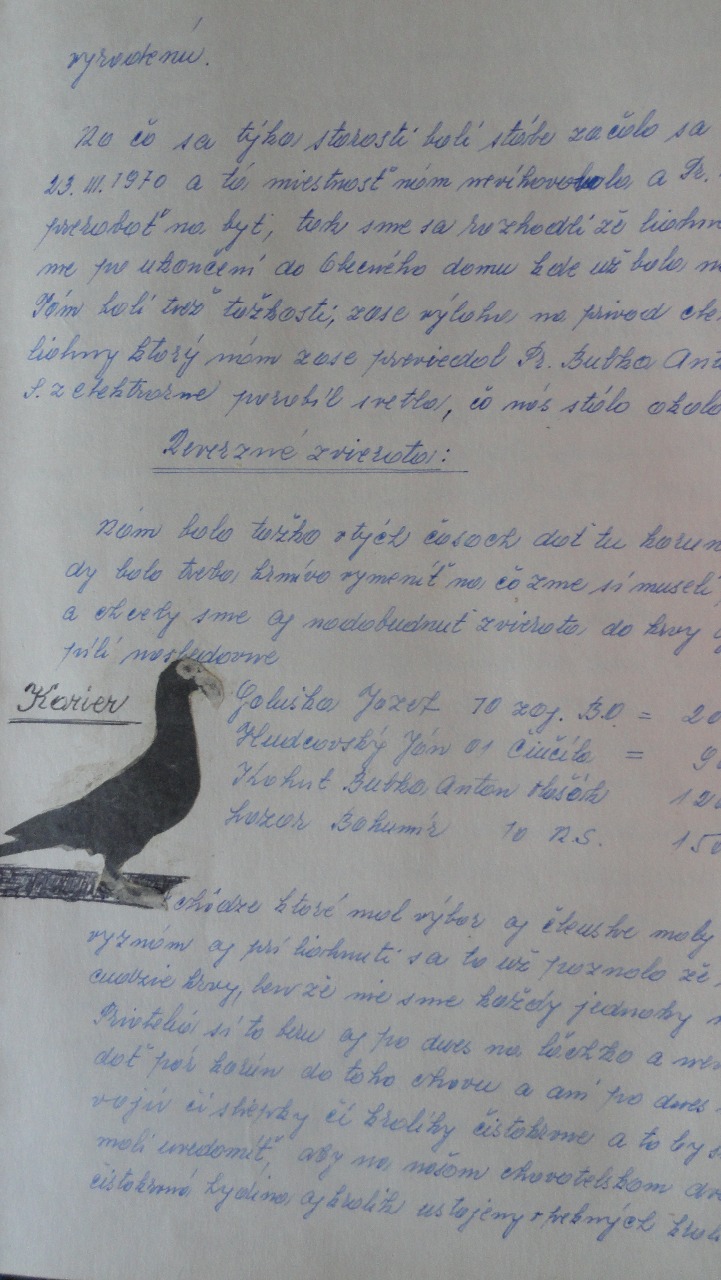 vyrodenú.
No čo sa týka starostí bolí stále začalo sa
23.III.1970 a tá miestnosť nám nevihovovala a Pr.
prerobať na byt, tak sme sa rozhodlí že liahn
me po ukončení do Obecného domu kde už bolo
Tám bolí tiež ťažkosti, zase výloha na privod ele
liahny ktorý nám zase previedol Pr. Bubka Ant
S. z elektrarne porobíl svetla, čo nás stálo okolo
Reverzné zvierata:
Nám bolo ťažko vtých časoch dať tu korun
dy bolo treba krmivo vymeniť na čo zme sí muselí
a chcely sme aj nadobudnuť zvierata do krvy
pílí nasledovne
Karier
Galuška Jozef 10 zaj. B.O. = 20
Hudcovský Ján 01 Čiučila = 90
Kohut Bubka Anton 120
Lazor Bohumír 10 R.S. 150
chôdze ktoré mal výbor aj členske maly
význám aj prí liahnutí sa to už poznalo že
cudzie krvy, len že nie sme každy jednaky
Priatelia sí to beru aj po dnes na ľáchko a
dať pár korún do toho chovu a aní po dnes
vajií čí sliepky čí kroliky čistokrvne a to by s
malí uvedomíť, aby na našom chovatelskom
čistokrvná hydina aj krolik ustajeny v pekných